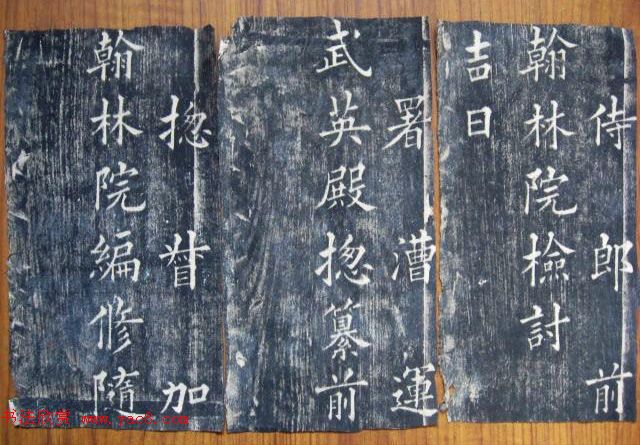 侍郎前
翰林院檢討
吉日
署漕運
武英殿揔纂前
揔督加
翰林院編修隨
书法欣赏 www.yac8.com